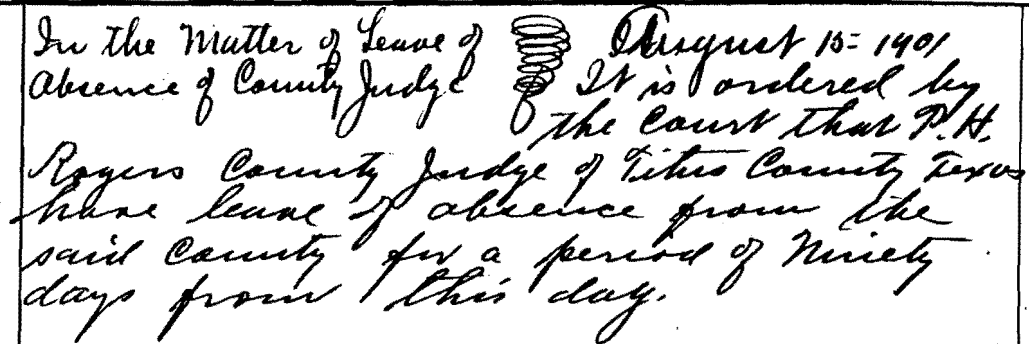 In the Matter of Leave of August 15= 1901
Absence of County Judge It is ordered by
the Court that P. H.
Rogers County Judge of Titus County Texas
have leave of absence from the
said County for a period of Ninety
days from this day.